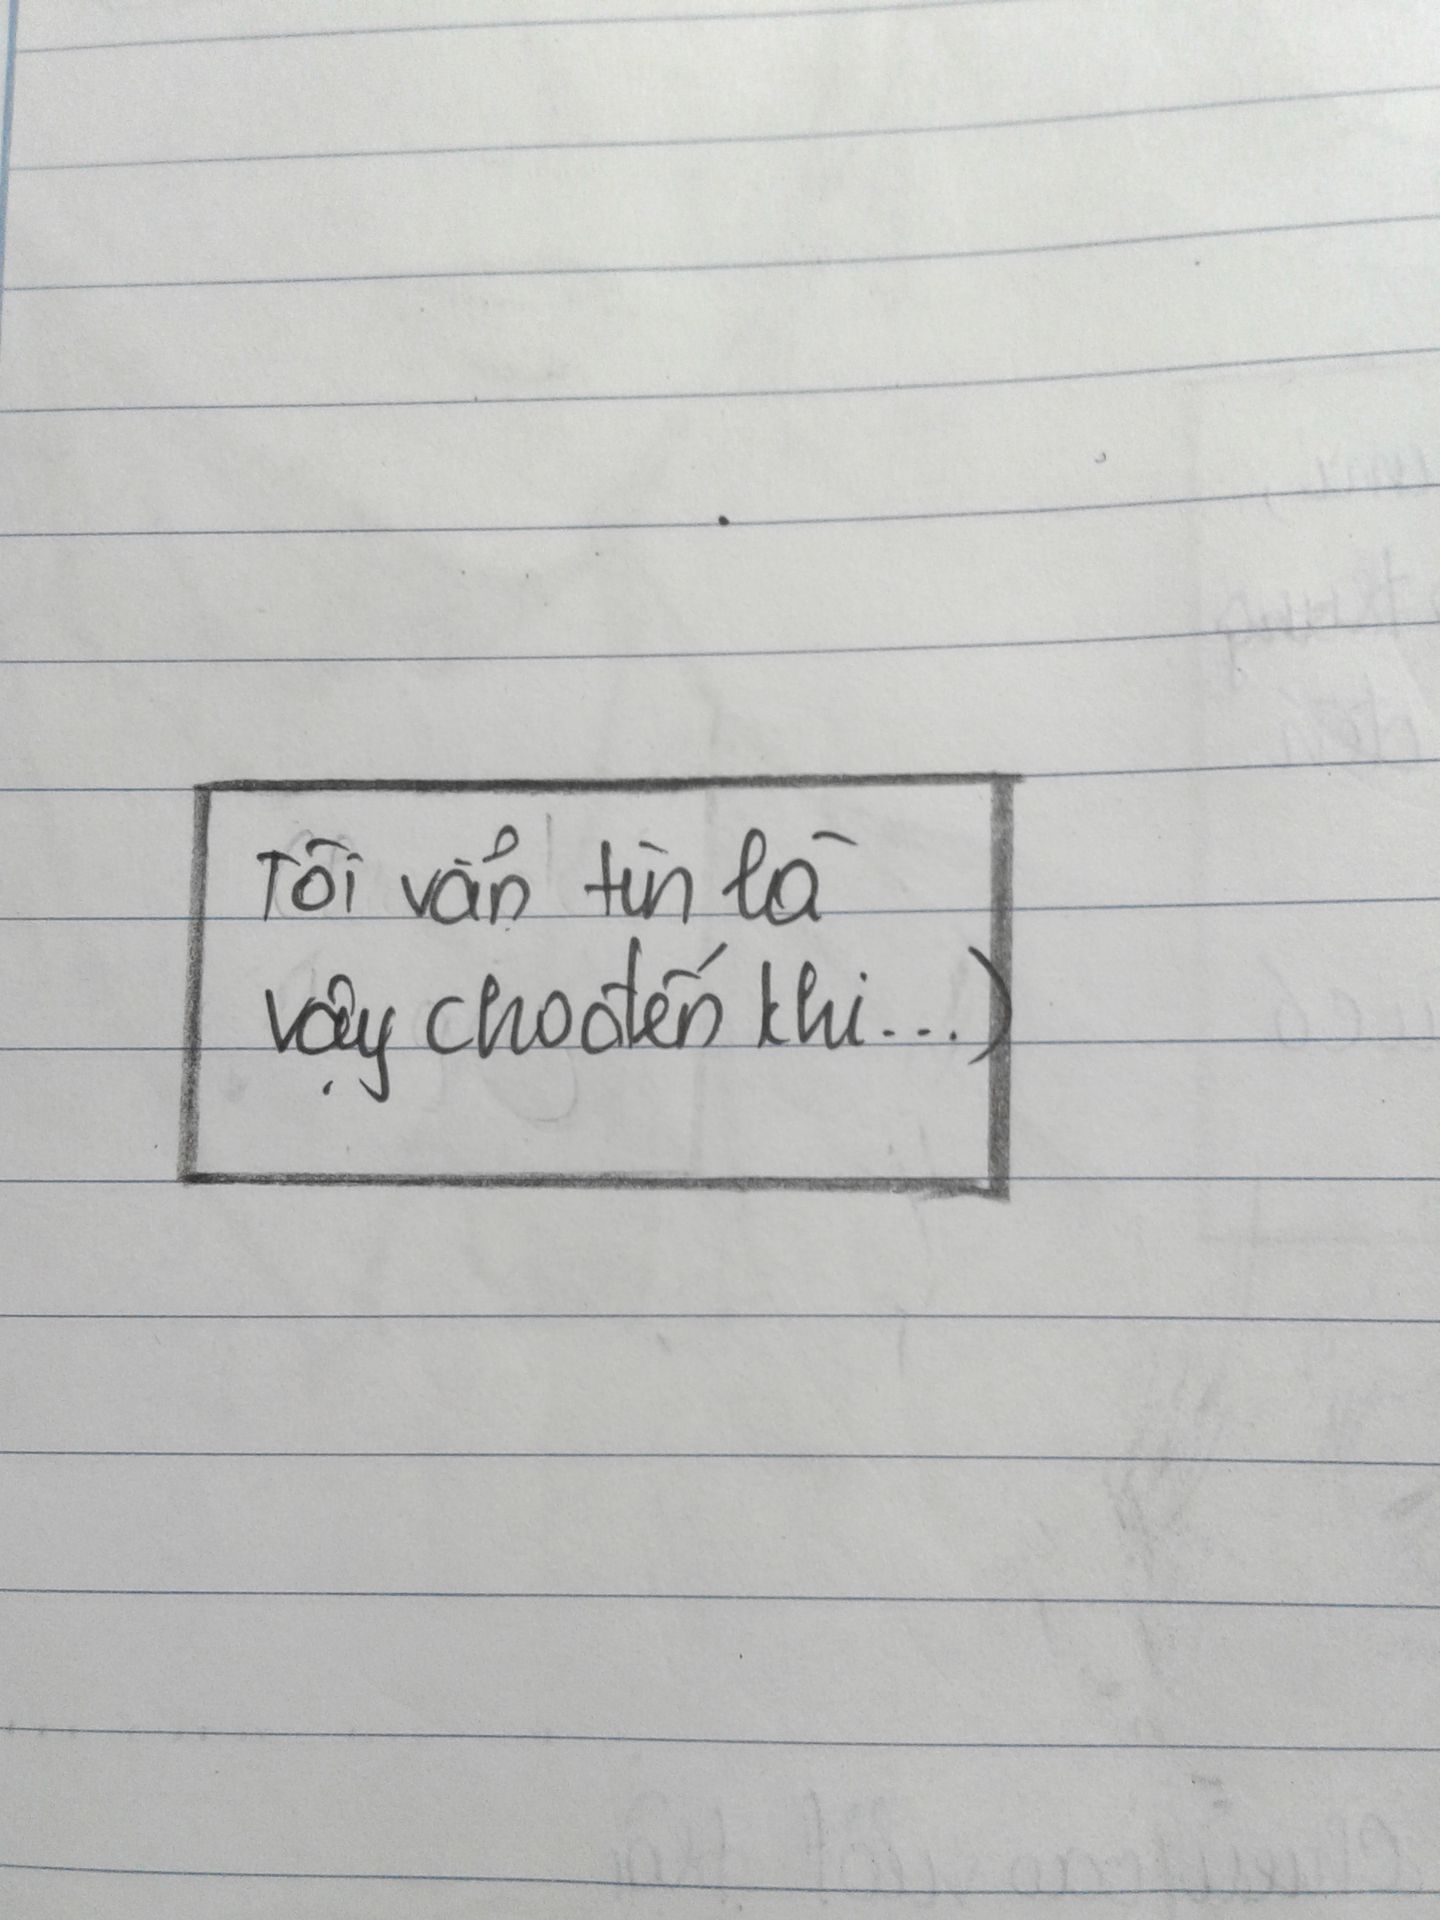 Tôi vẫn tin là
vậy cho đến khi...)